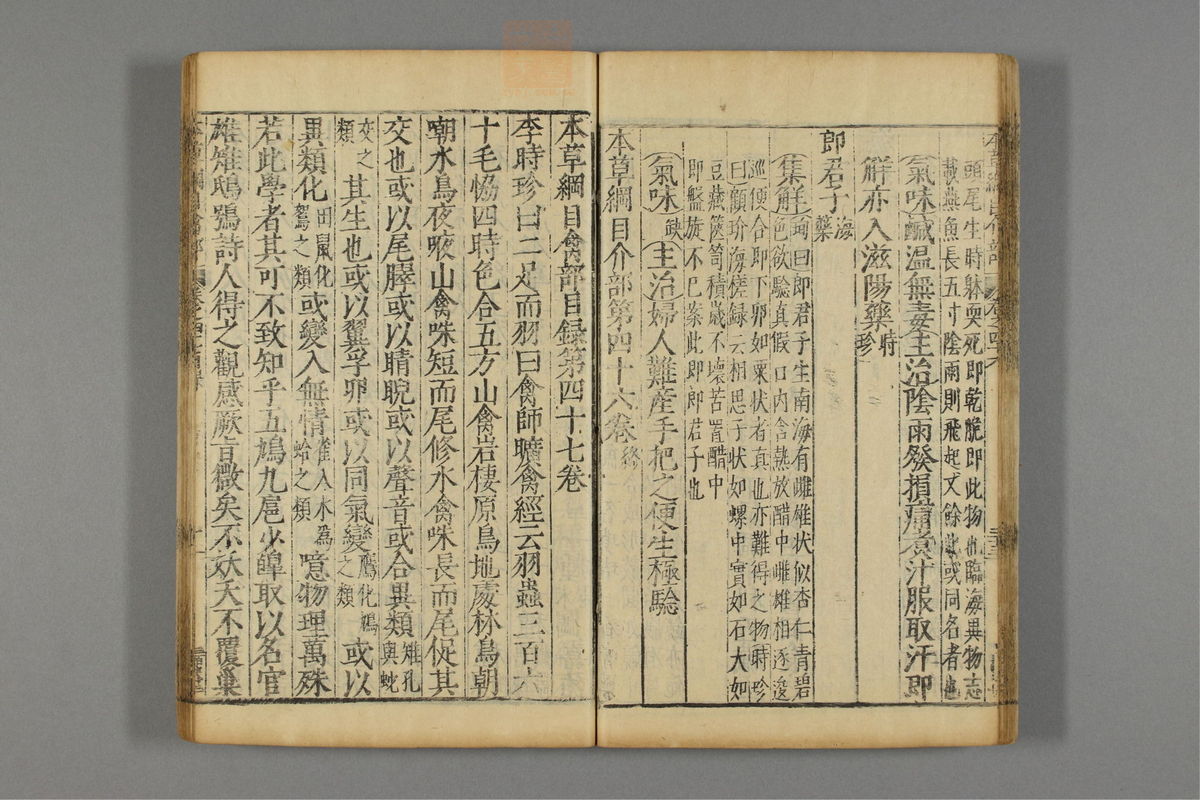 頭尾生時躰耎死即乾脆即此物也臨海異物志
載燕魚長五寸陰雨則飛起丈餘此或同名者也
氣味鹹温無毒主治陰雨發損痛煮汁服取汗即
觧亦入滋陽藥時珍
即君子海藥
集觧珣曰郎君子生南海有雌雄状似杏仁青碧
色欲驗真假口内含熱放醋中雌雄相逐逡
巡便合即下卵如粟状者真也亦難得之物時珍
曰顧玠海槎録云相思子状如螺中實如石大如
豆藏篋笥積歲不壞若置醋中
即盤旋不已案此即郎君子也
氣味缺主治婦人難産手把之便生極驗
本草綱目介部第四十六卷終
本草綱目禽部目録第四十七卷
李時珍曰二足而羽曰禽師曠禽經云羽蟲三百六
十毛恊四時色合五方山禽岩棲原鳥地處林鳥朝
嘲水鳥夜㖡山禽咮短而尾修水禽咮長而尾促其
交也或以尾臎或以睛睨或以聲音或合異類雉孔與蛇
交之類其生也或以翼孚卵或以同氣變鷹化鳩之類或以
異類化田鼠化鴽之類或變入無情雀入水為蛤之類噫物理萬殊
若此學者其可不致知乎五鳩九扈少皥取以名官
雄雉鴟鴞詩人得之觀感厥旨微矣不妖夭不覆巢